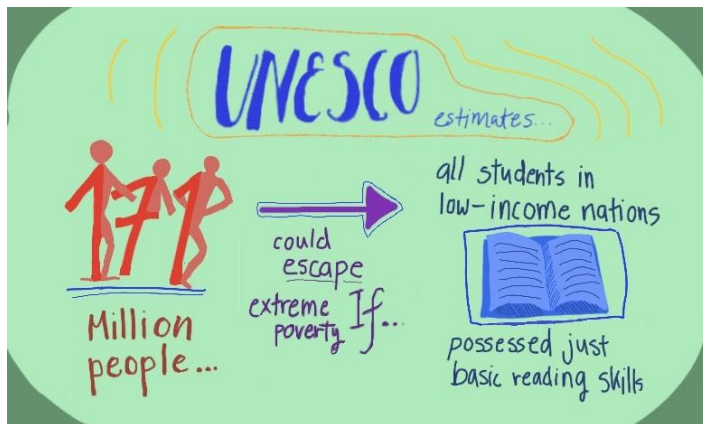 UNESCO
estimates...
171
Million
people...
could
escape
extreme
poverty If...
all students in
low-income nations
possessed just
basic reading skills